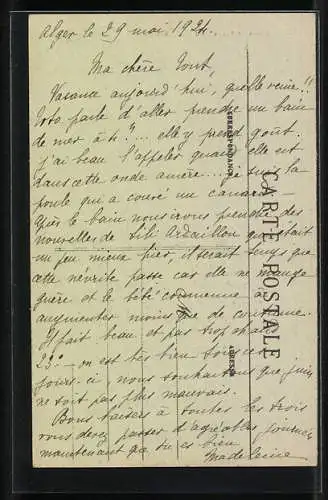 Alger le 29 mai 1924.
Ma chère Tout,
Vacance aujourd'hui, quelle veine !!
Toto parle d'aller prendre un bain
de mer à 4h... elle y prend goût.
j'ai beau l'appeler quand elle est
dans cette onde amère... je suis la
poule qui a couvé un canard.
Après le bain nous irons prendre des
nouvelles de Lili Ardaillon qui était
un peu mieux hier, il serait temps que
cette névrite passe car elle ne mange
guère et le bébé commence à
augmenter moins que de coutume.
Il fait beau et pas trop chaud
23° on est très bien tous ces
jours-ci, nous souhaitons que juin
ne soit pas plus mauvais.
Bons baisers à toutes les trois
vous devez passer d'agréables journées
maintenant que tu es bien.
Madeleine
CORRESPONDANCE
CARTE POSTALE
ADRESSE